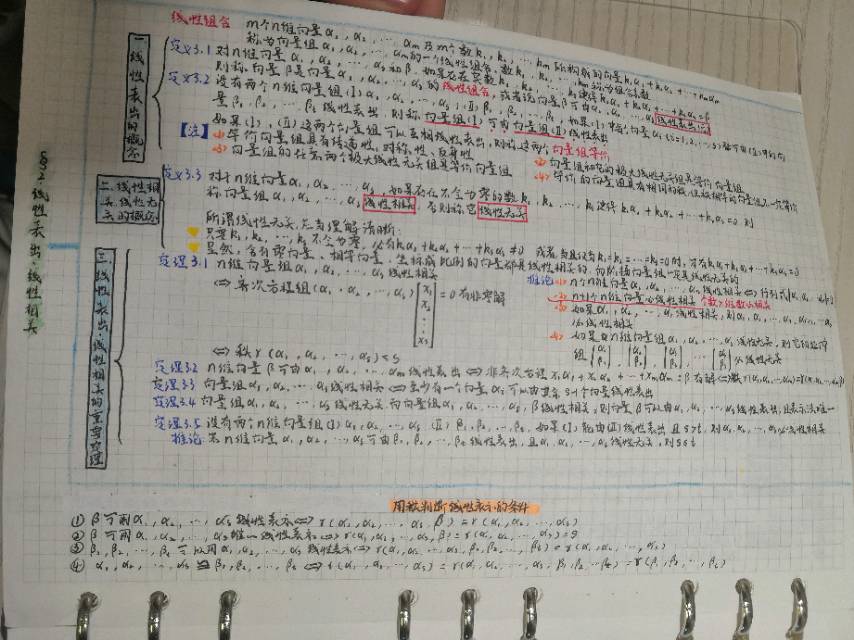 §2 线性表出、线性相关
一、线性表出的概念
线性组合 m个n维向量α₁, α₂, …, αₘ及m个数k₁, k₂, …, kₘ所构成的向量k₁α₁+k₂α₂+…+kₘαₘ
称为向量组α₁, α₂, …, αₘ的一个线性组合, 数k₁, k₂, …, kₘ称为组合系数
定义3.1 对n维向量α₁, α₂, …, αₛ和β, 如果存在实数k₁, k₂, …, kₛ使得k₁α₁+k₂α₂+…+kₛαₛ=β
则称向量β是向量α₁, α₂, …, αₛ的线性组合, 或者说向量β可由α₁, α₂, …, αₛ线性表出
定义3.2 设有两个n维向量组(Ⅰ)α₁, α₂, …, αₛ; (Ⅱ)β₁, β₂, …, βₜ, 如果(Ⅰ)中每个向量αᵢ(i=1,2,…,s)都可由(Ⅱ)中的向
量β₁, β₂, …, βₜ线性表出, 则称向量组(Ⅰ)可由向量组(Ⅱ)线性表出
如果(Ⅰ)、(Ⅱ)这两个向量组可以互相线性表出, 则称这两个向量组等价
【注】(1) 等价向量组具有传递性, 对称性, 反身性 (2) 向量组和它的极大线性无关组是等价向量组
(3) 向量组的任意两个极大线性无关组是等价向量组 (4) 等价的向量组具有相同的秩, 但秩相等的向量组不一定等价
二、线性相关、线性无关的概念
定义3.3 对于n维向量α₁, α₂, …, αₛ, 如果存在不全为零的数k₁, k₂, …, kₛ使得k₁α₁+k₂α₂+…+kₛαₛ=0 则
称向量组α₁, α₂, …, αₛ线性相关, 否则称它线性无关
所谓线性无关, 应当理解清晰:
只要k₁, k₂, …, kₛ不全为零, 必有k₁α₁+k₂α₂+…+kₛαₛ≠0 或者, 当且仅当k₁=k₂=…=kₛ=0时, 才有k₁α₁+k₂α₂+…+kₛαₛ=0
显然, 含有零向量、相等向量、坐标成比例的向量都是线性相关的, 而阶梯向量组一定是线性无关的
三、线性表出、线性相关的重要定理
定理3.1 n维向量组α₁, α₂, …, αₛ线性相关
⇔ 齐次方程组(α₁, α₂, …, αₛ)[x₁ x₂ ⋮ xₛ]=0有非零解
⇔ 秩r(α₁, α₂, …, αₛ)<s
推论 (1) n个n维向量α₁, α₂, …, αₙ线性相关⇔行列式|α₁, α₂, …, αₙ|=0
(2) n+1个n维向量必线性相关 个数>维数必相关
(3) 如果α₁, α₂, …, αₛ线性相关, 则α₁, α₂, …, αₛ, αₛ₊₁, …, αₘ
必线性相关
(4) 如果n维向量组α₁, α₂, …, αₛ线性无关, 则它的延伸
组[α₁ β₁], [α₂ β₂], …, [αₛ βₛ]必线性无关
定理3.2 n维向量β可由α₁, α₂, …, αₘ线性表出⇔非齐次方程x₁α₁+x₂α₂+…+xₘαₘ=β有解⇔秩r(α₁,α₂,…,αₘ)=r(α₁,α₂,…,αₘ,β)
定理3.3 向量组α₁, α₂, …, αₛ线性相关⇔至少有一个向量αᵢ可以由其余s-1个向量线性表出
定理3.4 向量组α₁, α₂, …, αₛ线性无关, 而向量组α₁, α₂, …, αₛ, β线性相关, 则向量β可以由α₁, α₂, …, αₛ线性表出, 且表示法唯一
定理3.5 设有两个n维向量组(Ⅰ)α₁, α₂, …, αₛ (Ⅱ)β₁, β₂, …, βₜ, 如果(Ⅰ)能由(Ⅱ)线性表出, 且s>t, 则α₁, α₂, …, αₛ必线性相关
推论: 若n维向量α₁, α₂, …, αₛ可由β₁, β₂, …, βₜ线性表出, 且α₁, α₂, …, αₛ线性无关, 则s≤t
用秩判断线性表示的条件
① β可用α₁, α₂, …, αₛ线性表示⇔r(α₁, α₂, …, αₛ, β)=r(α₁, α₂, …, αₛ)
② β可用α₁, α₂, …, αₛ唯一线性表示⇔r(α₁, α₂, …, αₛ, β)=r(α₁, α₂, …, αₛ)=s
③ β₁, β₂, …, βₜ可以用α₁, α₂, …, αₛ线性表示⇔r(α₁, α₂, …, αₛ, β₁, β₂, …, βₜ)=r(α₁, α₂, …, αₛ)
④ α₁, α₂, …, αₛ≌β₁, β₂, …, βₜ⇔r(α₁, α₂, …, αₛ)=r(α₁, α₂, …, αₛ, β₁, β₂, …, βₜ)=r(β₁, β₂, …, βₜ)